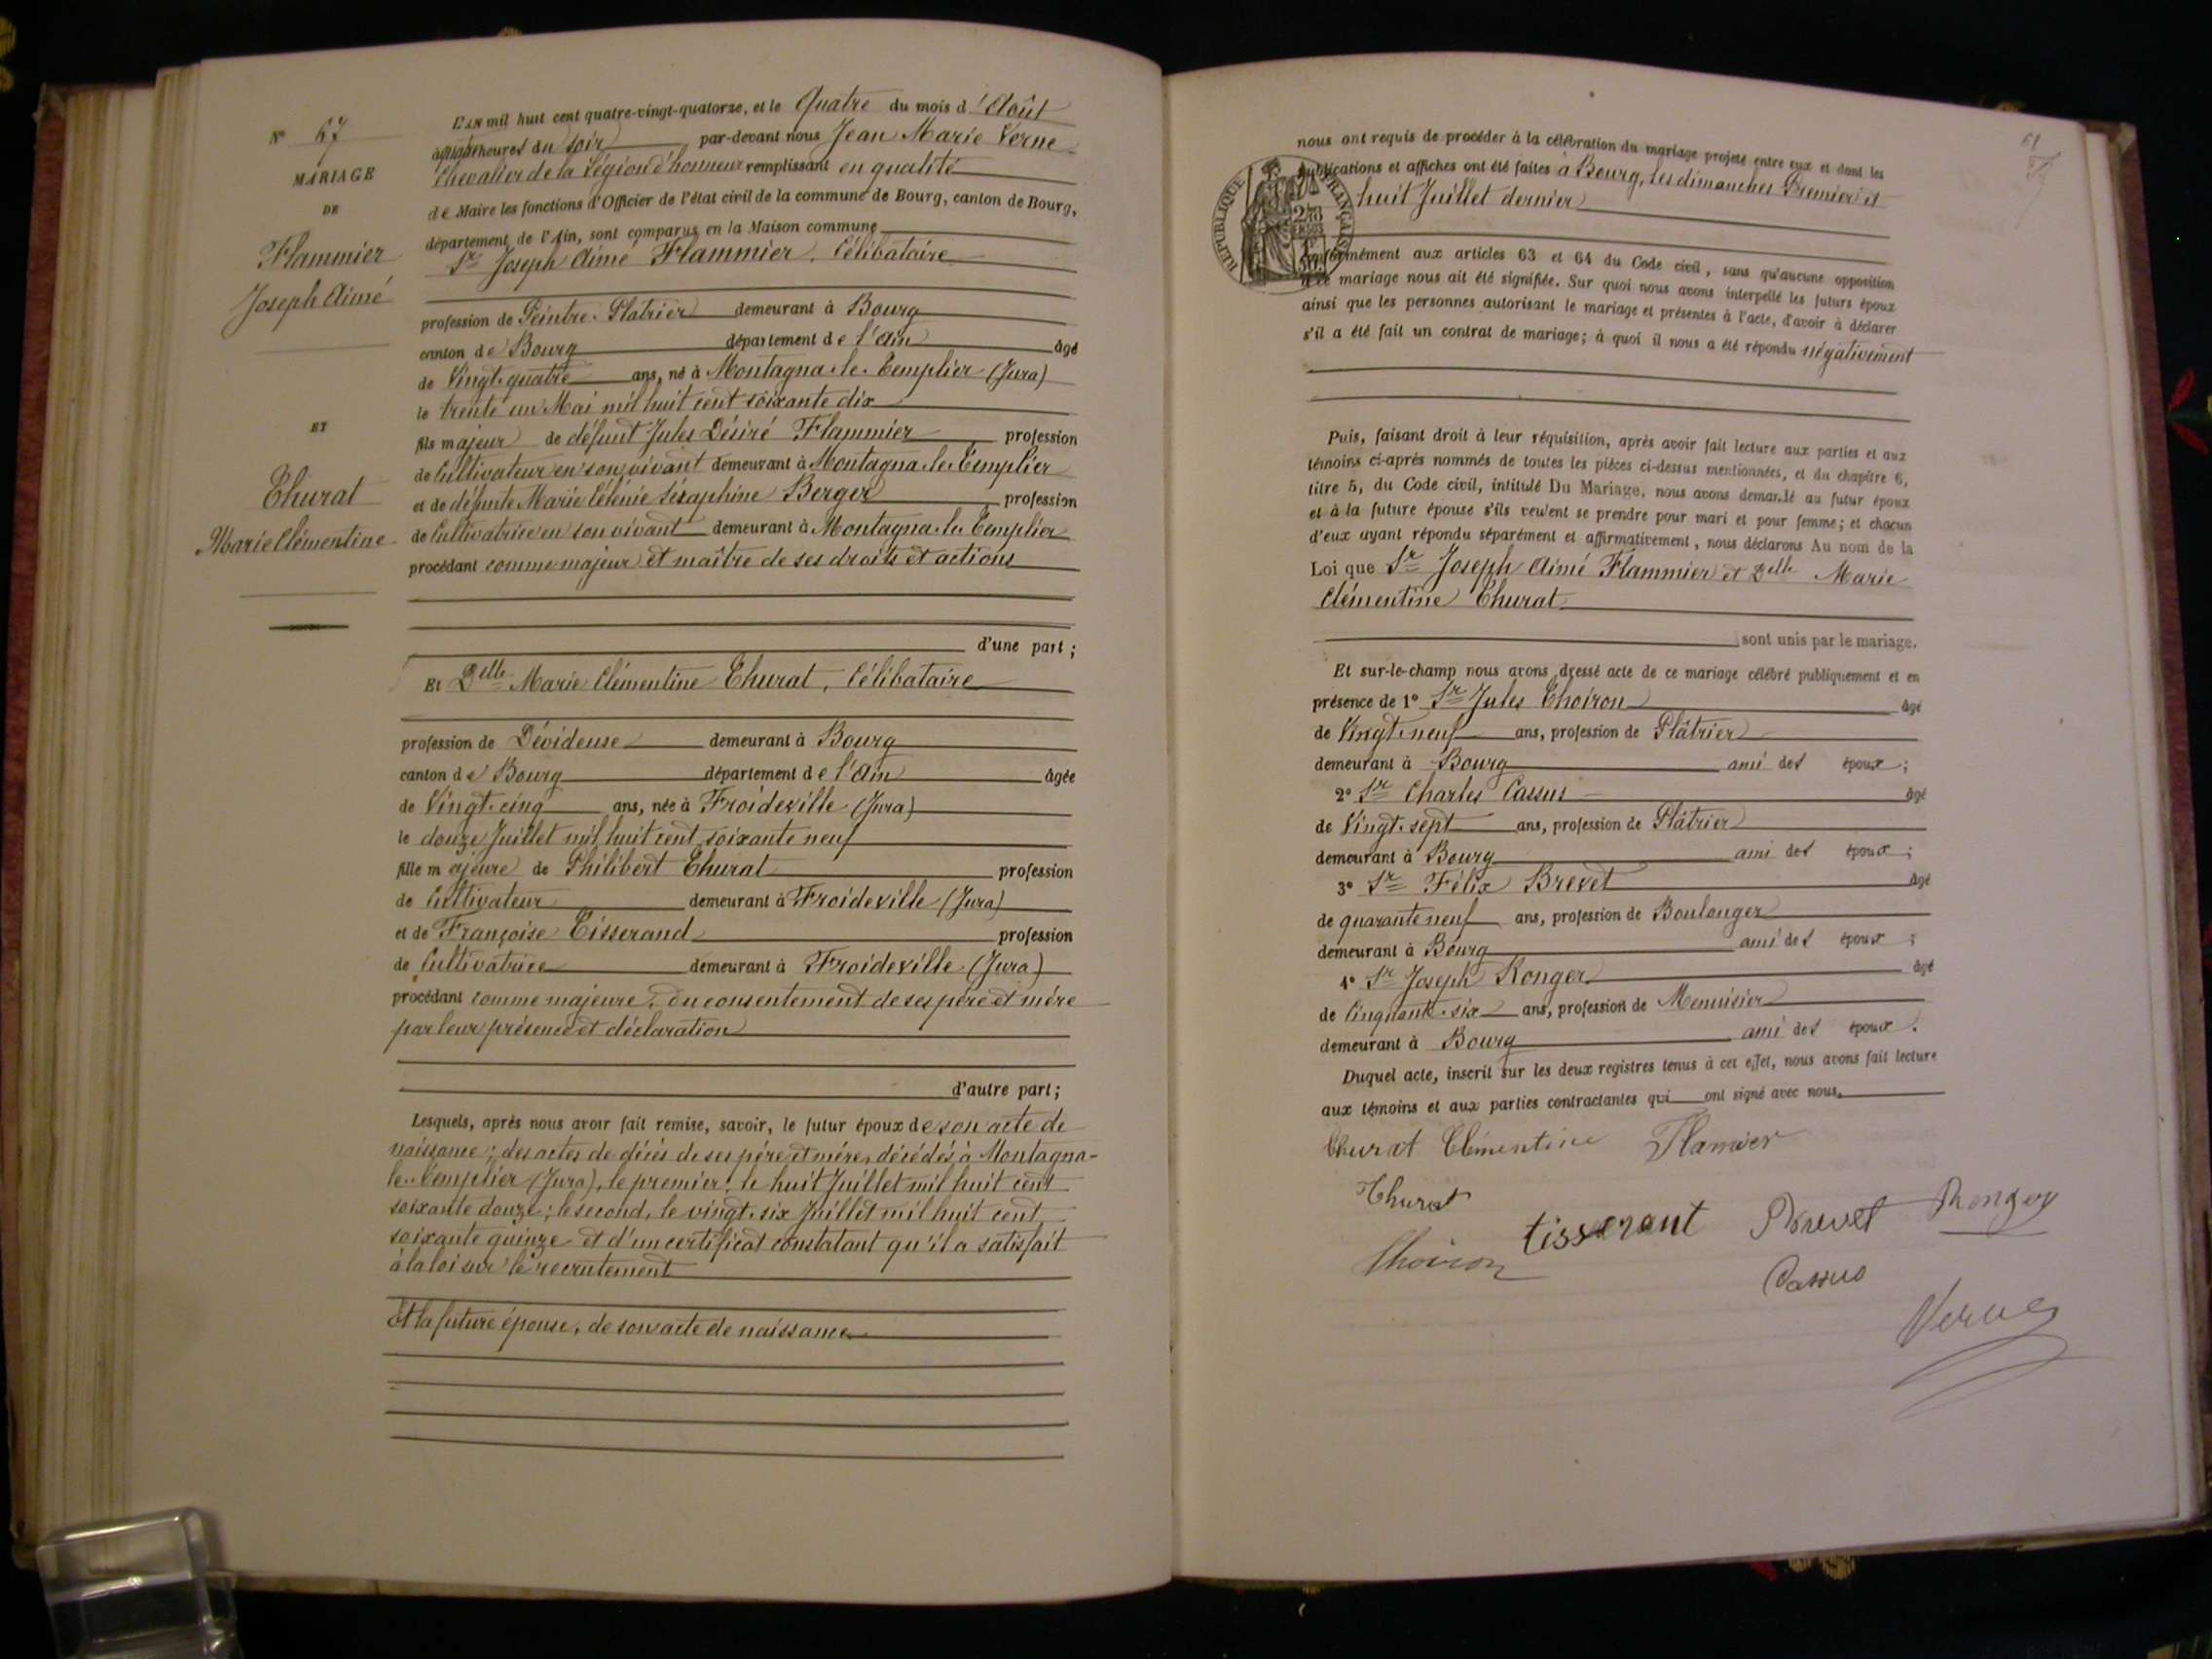 N° 67
MARIAGE
DE
Flammier
Joseph Aimé
ET
Thurat
Marie Clémentine
L'AN mil huit cent quatre-vingt-quatorze, et le Quatre du mois d'Août
à quatre heures du soir par-devant nous Jean Marie Verne
Chevalier de la Légion d'honneur remplissant en qualité
de Maire les fonctions d'Officier de l'état civil de la commune de Bourg, canton de Bourg,
département de l'Ain, sont comparus en la Maison commune
Sr Joseph Aimé Flammier, Célibataire
profession de Peintre-Plâtrier demeurant à Bourg
canton de Bourg département de l'Ain âgé
de Vingt-quatre ans, né à Montagna-le-Templier (Jura)
le trente un Mai mil huit cent soixante dix
fils majeur de défunt Jules Désiré Flammier profession
de Cultivateur en son vivant demeurant à Montagna-le-Templier
et de défunte Marie Célénie Séraphine Berger profession
de Cultivatrice en son vivant demeurant à Montagna-le-Templier
procédant comme majeur et maître de ses droits et actions
d'une part ;
Et Delle Marie Clémentine Thurat, Célibataire
profession de Dévideuse demeurant à Bourg
canton de Bourg département de l'Ain âgée
de Vingt-cinq ans, née à Froideville (Jura)
le douze Juillet mil huit cent soixante neuf
fille majeure de Philibert Thurat profession
de Cultivateur demeurant à Froideville (Jura)
et de Françoise Tisserand profession
de Cultivatrice demeurant à Froideville (Jura)
procédant comme majeure, du consentement de ses père et mère
par leur présence et déclaration
d'autre part ;
Lesquels, après nous avoir fait remise, savoir, le futur époux de son acte de
naissance ; des actes de décès de ses père et mère, décédés à Montagna-
le-Templier (Jura), le premier, le huit Juillet mil huit cent
soixante douze ; le second, le vingt-six Juillet mil huit cent
soixante quinze et d'un certificat constatant qu'il a satisfait
à la loi sur le recrutement
Et la future épouse, de son acte de naissance
nous ont requis de procéder à la célébration du mariage projeté entre eux et dont les
publications et affiches ont été faites à Bourg, les dimanches Premier et
huit Juillet dernier
RÉPUBLIQUE FRANÇAISE
conformément aux articles 63 et 64 du Code civil, sans qu'aucune opposition
à ce mariage nous ait été signifiée. Sur quoi nous avons interpellé les futurs époux
ainsi que les personnes autorisant le mariage et présentes à l'acte, d'avoir à déclarer
s'il a été fait un contrat de mariage ; à quoi il nous a été répondu négativement
Puis, faisant droit à leur réquisition, après avoir fait lecture aux parties et aux
témoins ci-après nommés de toutes les pièces ci-dessus mentionnées, et du chapitre 6,
titre 5, du Code civil, intitulé Du Mariage, nous avons demandé au futur époux
et à la future épouse s'ils veulent se prendre pour mari et pour femme ; et chacun
d'eux ayant répondu séparément et affirmativement, nous déclarons Au nom de la
Loi que Sr Joseph Aimé Flammier et Delle Marie
Clémentine Thurat
sont unis par le mariage.
Et sur-le-champ nous avons dressé acte de ce mariage célébré publiquement et en
présence de 1° Sr Jules Choiron âgé
de Vingt-neuf ans, profession de Plâtrier
demeurant à Bourg ami des époux ;
2° Sr Charles Cassus âgé
de Vingt-sept ans, profession de Plâtrier
demeurant à Bourg ami des époux ;
3° Sr Félix Brevet âgé
de quarante neuf ans, profession de Boulanger
demeurant à Bourg ami des époux ;
4° Sr Joseph Ronger âgé
de Cinquante-six ans, profession de Menuisier
demeurant à Bourg ami des époux.
Duquel acte, inscrit sur les deux registres tenus à cet effet, nous avons fait lecture
aux témoins et aux parties contractantes qui ont signé avec nous.
Thurat Clémentine Flamier
Thurat
tisserant Brevet Ronger
Choiron
Cassus
Verne